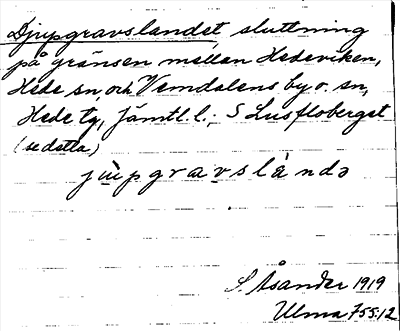 Djupgravslandet, sluttning
på gränsen mellan Hedeviken,
Hede sn, och Vemdalens by o. sn,
Hede tg, Jämtl. l.; S Lusfloberget
(se detta)
jùpgravslàndə
S. Åsander 1919
Ulma 755:12